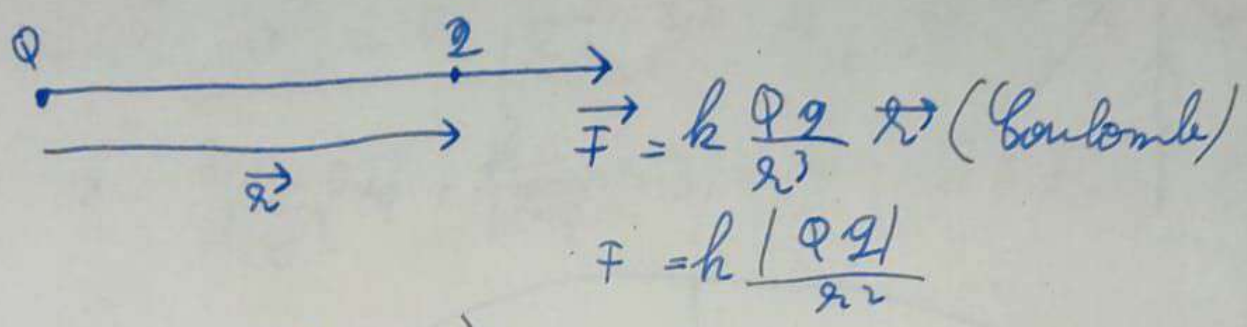 Q q
F⃗ = k Qq/r³ r⃗ (Coulomb)
r⃗
F = k |Qq|/r²